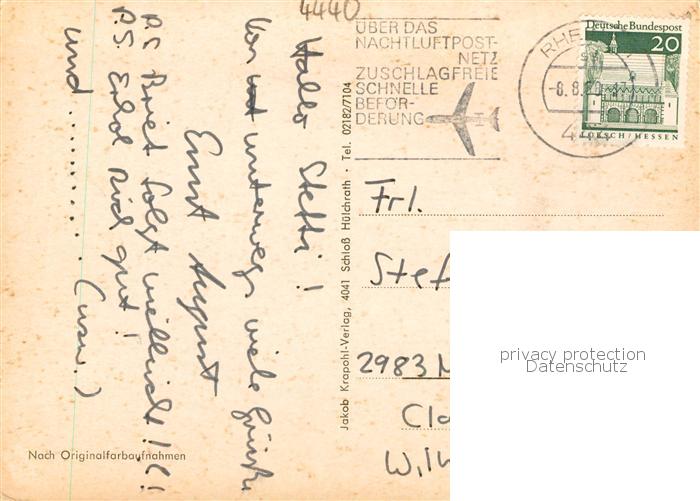 4440
ÜBER DAS
NACHTLUFTPOST-
NETZ
ZUSCHLAGFREIE
SCHNELLE
BEFÖR-
DERUNG
RHE
-8.8.
4
Deutsche Bundespost
20
LORSCH/HESSEN
Hallo Steffi!
von unterwegs viele Grüße
Ernst August
P.S. Brief folgt vielleicht!!!
P.S. Erhol Dich gut!
und .......... (usw.)
Jakob Krapohl-Verlag, 4041 Schloß Hülchrath · Tel. 02182/7104
Frl.
Stef
2983
Cla
Wilh
privacy protection
Datenschutz
Nach Originalfarbaufnahmen